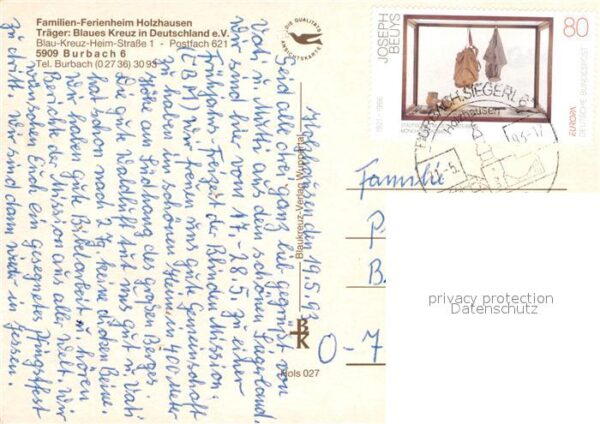 Familien-Ferienheim Holzhausen
Träger: Blaues Kreuz in Deutschland e.V.
Blau-Kreuz-Heim-Straße 1 - Postfach 621
5909 Burbach 6
Tel. Burbach (0 27 36) 30 93
DIE QUALITÄTS
ANSICHTSKARTE
JOSEPH
BEUYS
1921-1986
80
EUROPA
DEUTSCHE BUNDESPOST
BURBACH, SIEGERL
Holzhausen
Holzhausen, den 19.5.93
Seid alle drei ganz lieb gegrüßt, von
Vati u. Mutti aus dem schönen Siegerland.
Wir sind hier vom 17.-28.5. zu einer
Frühjahrs-Freizeit der Mission.
Wir freuen uns gute Gemeinschaft
zu haben im schönen Heim in 400 Meter
Höhe am Südhang des großen Berges.
Die gute Waldluft tut uns gut u. Vati
hat schon nach 2 Tg. keine dicken Beine.
Wir haben gute Bibelarbeit u. hören
Berichte der Mission aus aller Welt. Wir
wünschen Euch ein gesegnetes Pfingstfest
zu dritt. Wir sind dann wieder in
Blaukreuz-Verlag Wuppertal
BK
Hols 027
Familie
P
B
O-7
privacy protection
Datenschutz